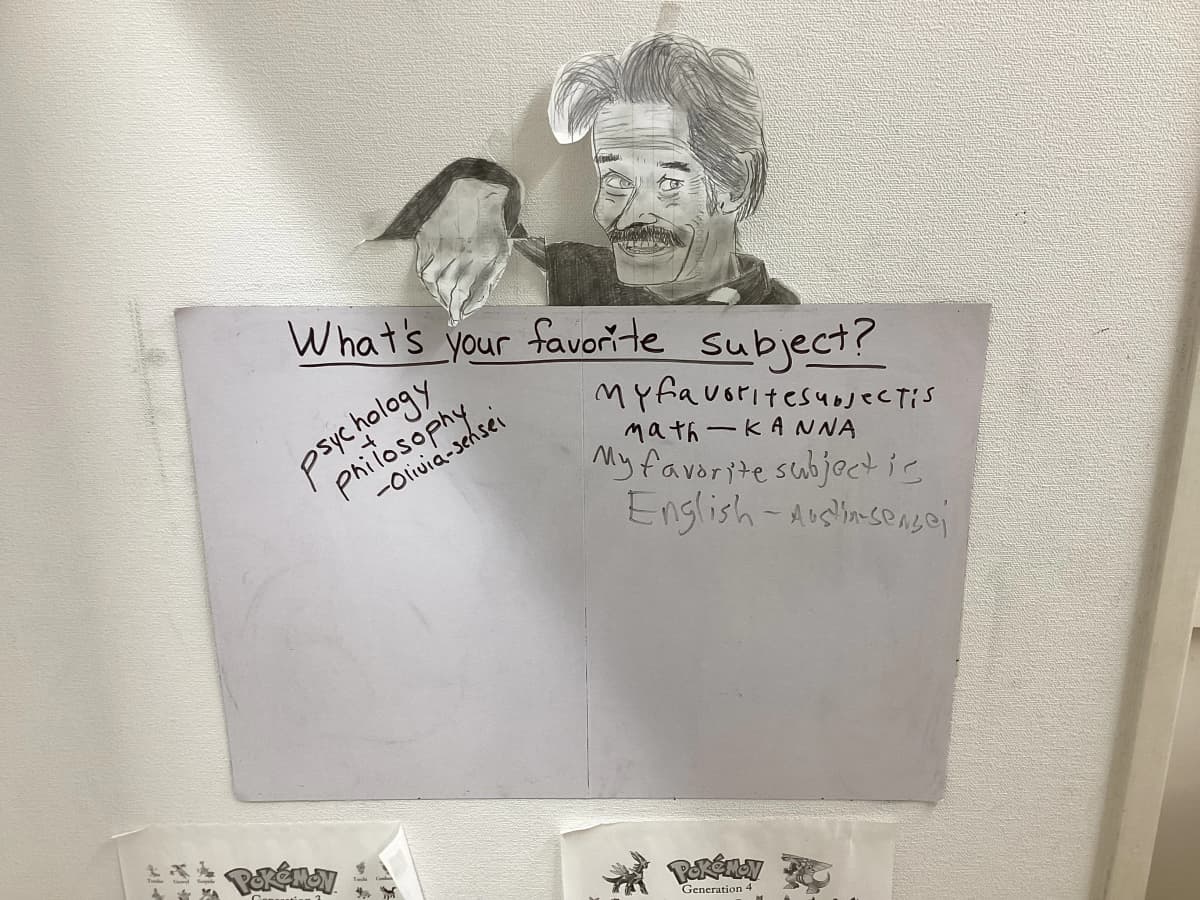 What's your favorite subject?
psychology
+
philosophy
-Olivia-sensei
My favorite subject is
math - KANNA
My favorite subject is
English - Austin-sensei
POKéMON
POKéMON
Generation 4